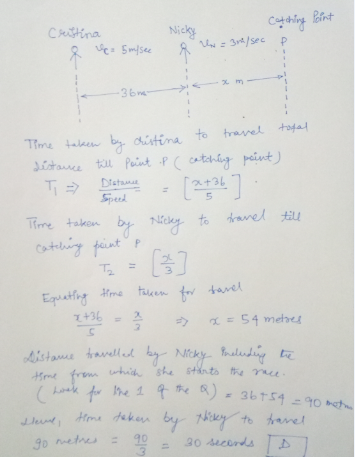 Catching Point
Cristina Nicky
Vc = 5m/sec VN = 3m/sec P
36m x m
Time taken by cristina to travel total
distance till Point P (catching point)
T1 ⇒ Distance/Speed = [x+36/5]
Time taken by Nicky to travel till
catching point P
T2 = [x/3]
Equating time taken for travel
x+36/5 = x/3 ⇒ x = 54 metres
Distance travelled by Nicky Including the
time from which she starts the race.
(Look for line 1 of the Q) = 36+54 = 90 metres
Hence, time taken by Nicky to travel
90 metres = 90/3 = 30 seconds D